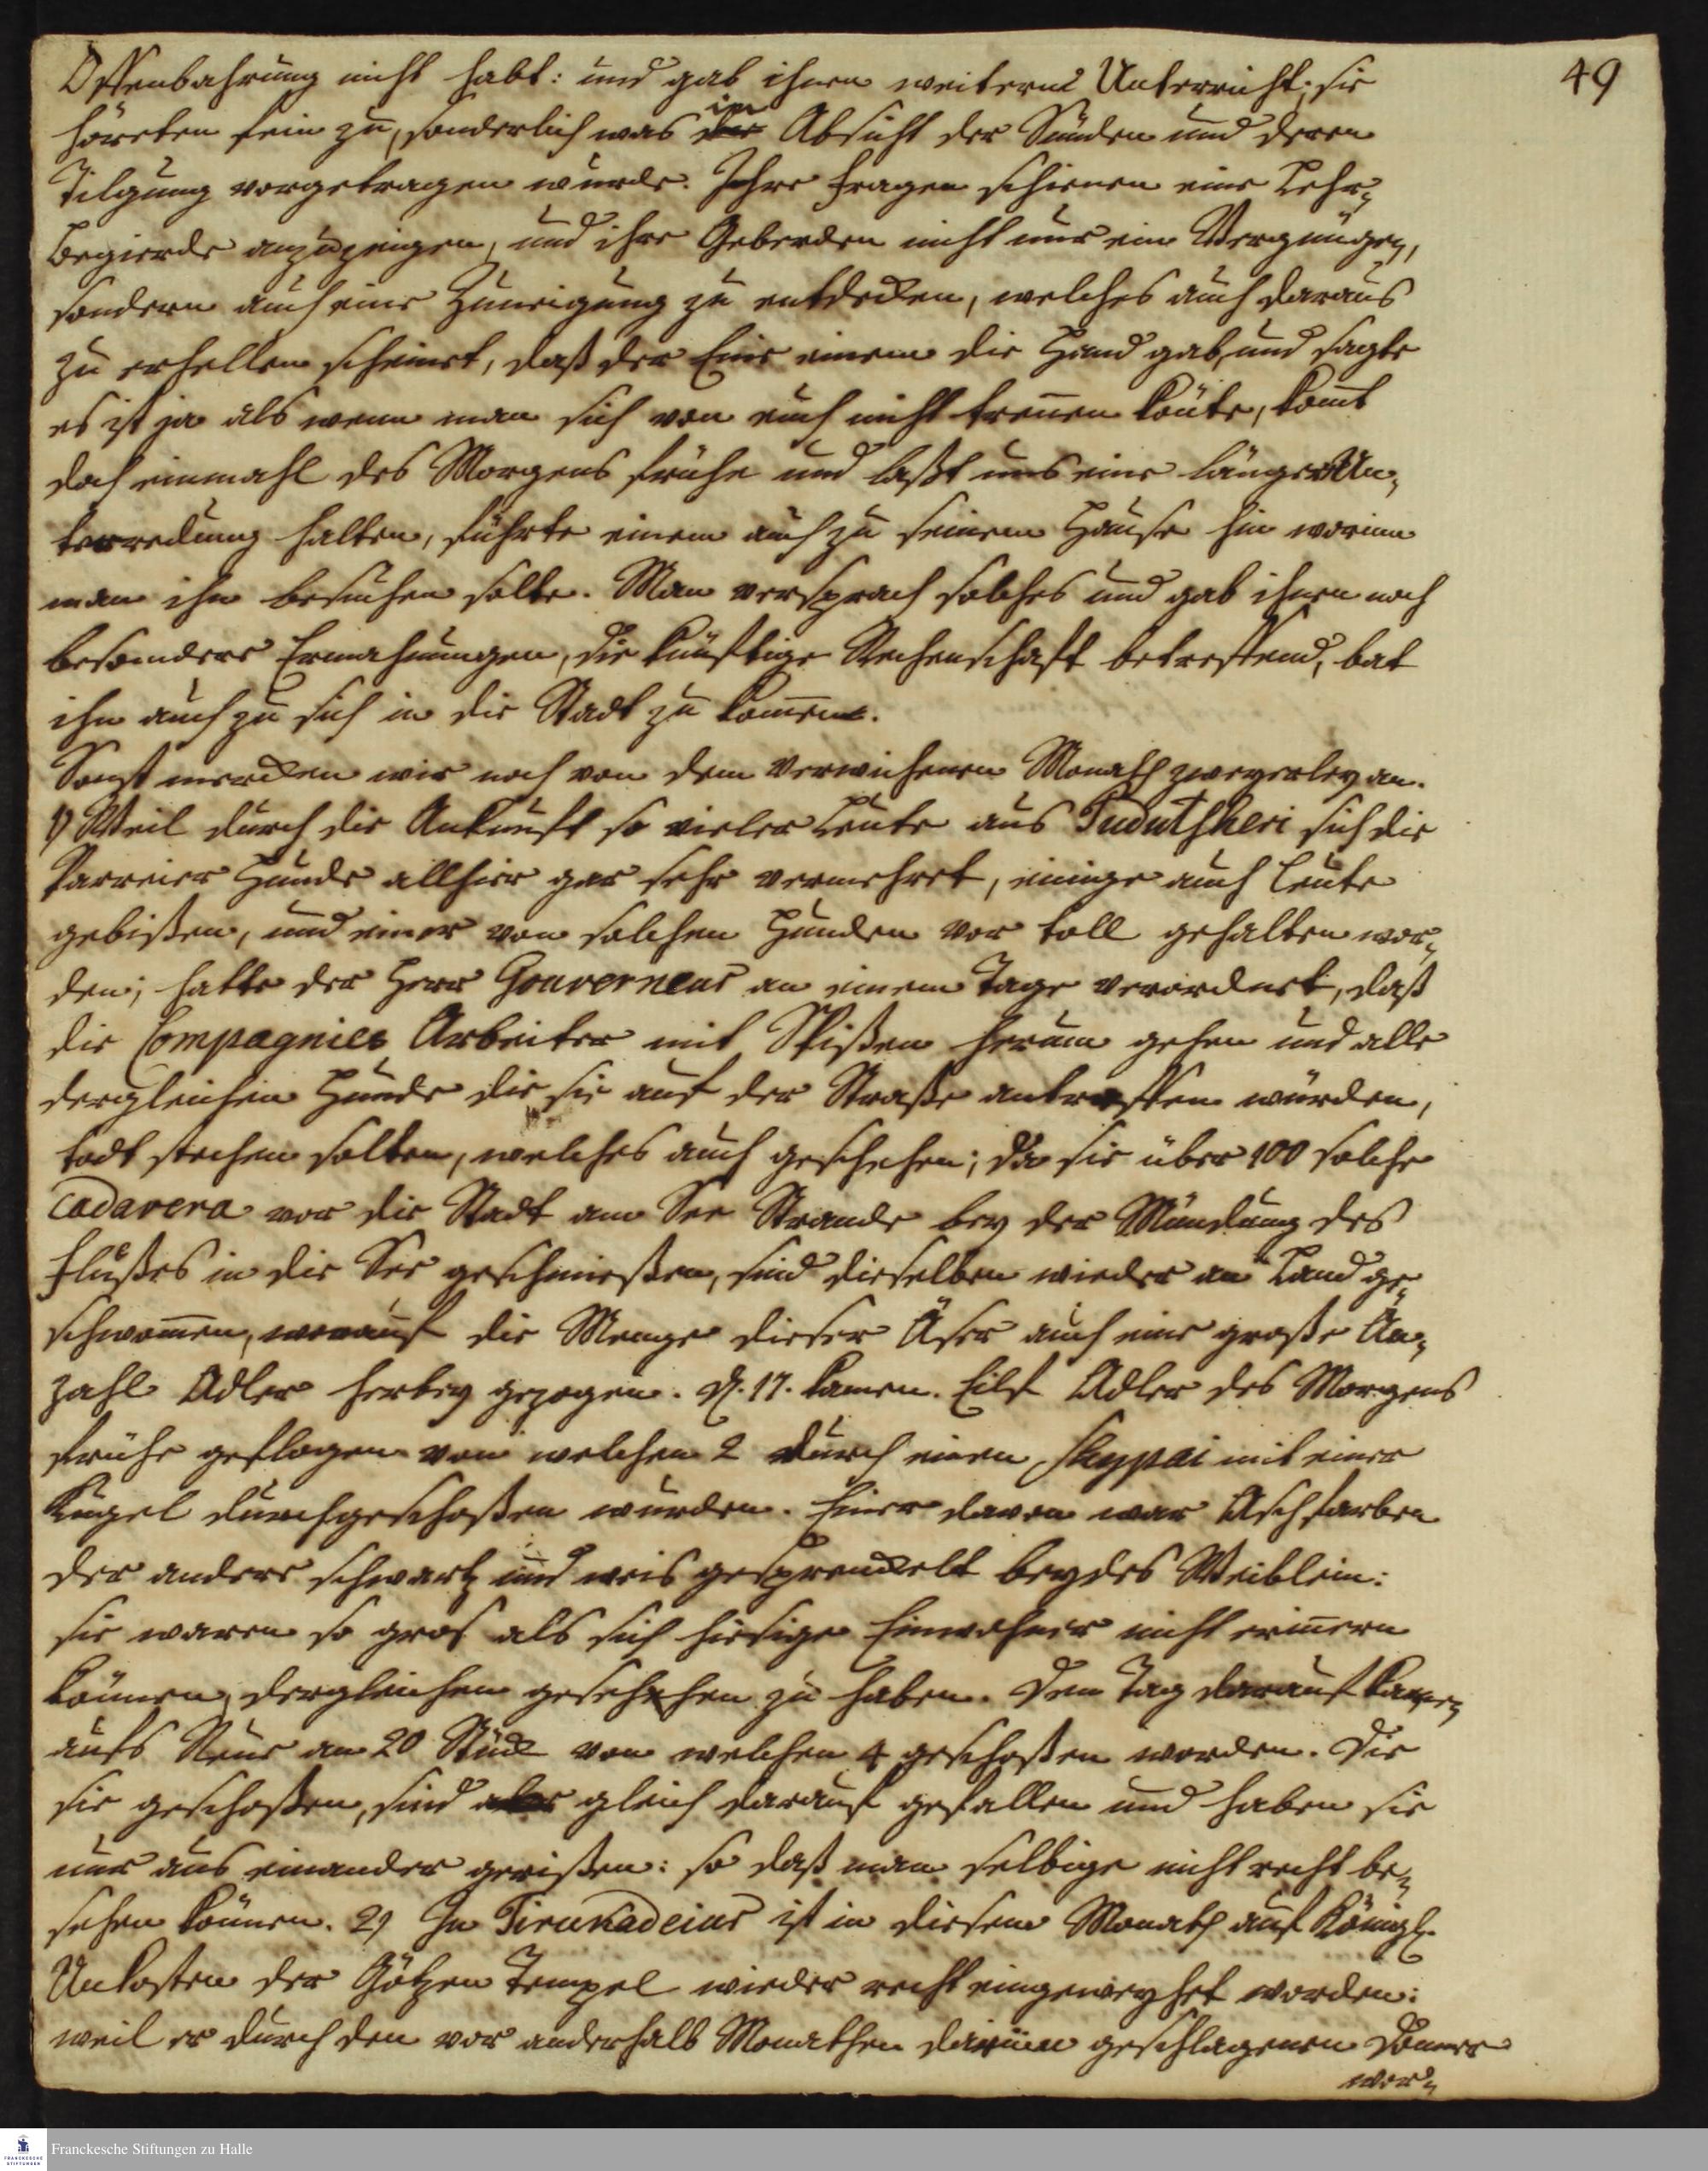 49
Offenbahrung nicht habt: und gab ihnen weitern Unterricht; sie
höreten fein zu, sonderlich was in Absicht der Sünden und deren
Tilgung vorgetragen wurde. Ihre Fragen schienen eine Lehr-
begierde anzuzeigen, und ihre Geberden nicht nur ein Vergnügen,
sondern auch eine Zuneigung zu entdecken, welches auch daraus
zu erhellen scheinet, daß der Eine einem die Hand gab, und sagte
es ist ja als wenn man sich von euch nicht treñen köñte, kom̄t
doch einmahl des Morgens frühe und laßt uns eine längere Un-
terredung halten, führte einem auch zu seinem Hause hin worinn
man ihn besuchen solte. Man versprach solches und gab ihnen noch
besondere Ermahnungen, die künftige Rechenschaft betreffend, bat
ihn auch zu sich in die Stadt zu kom̄en.
Sonst mercken wir noch von dem verwichenen Monath zweyerley an.
1) Weil durch die Ankunft so vieler Leute aus Pudutscheri sich die
Parreier Hunde allhier gar sehr vermehret, einige auch Leute
gebißen, und einer von solchen Hunden vor toll gehalten wor-
den; hatte der Herr Gouverneur an einem Tage verordnet, daß
die Compagnies Arbeiter mit Spißen herum gehen und alle
dergleichen Hunde die sie auf der Straße antreffen würden,
todt stechen solten, welches auch geschehen; da sie über 100 solche
Cadavera vor die Stadt am See Strande bey der Mündung des
Flußes in die See geschmießen, sind dieselben wieder an Land ge-
schwom̄en, worauf die Menge dieser Äser auch eine große An-
zahl Adler herbey gezogen. D. 17. kamen Eilf Adler des Morgens
frühe geflogen von welchen 2 durch einen Sheppai mit einer
Kugel durchgeschoßen wurden. Einer davon war Aschfarben
der andere schwartz und weis gesprenckelt beydes Weiblein:
sie waren so gros als sich hiesige Einwohner nicht eriñern
können, dergleichen gesehen zu haben. Den Tag darauf kamen
aufs Neue an 20 Stück von welchen 4 geschoßen worden. Die
sie geschoßen, sind aber gleich darauf gefallen und haben sie
nur aus einander gerißen: so daß man selbige nicht recht be-
sehen können. 2) In Tirukadeiur ist in diesem Monath auf Königl.
Unkosten der Götzen Tempel wieder recht eingeweyhet worden:
weil er durch den vor anderhalb Monathen darinn geschlagenen Doñer
wor-
Franckesche Stiftungen zu Halle
FRANCKESCHE STIFTUNGEN